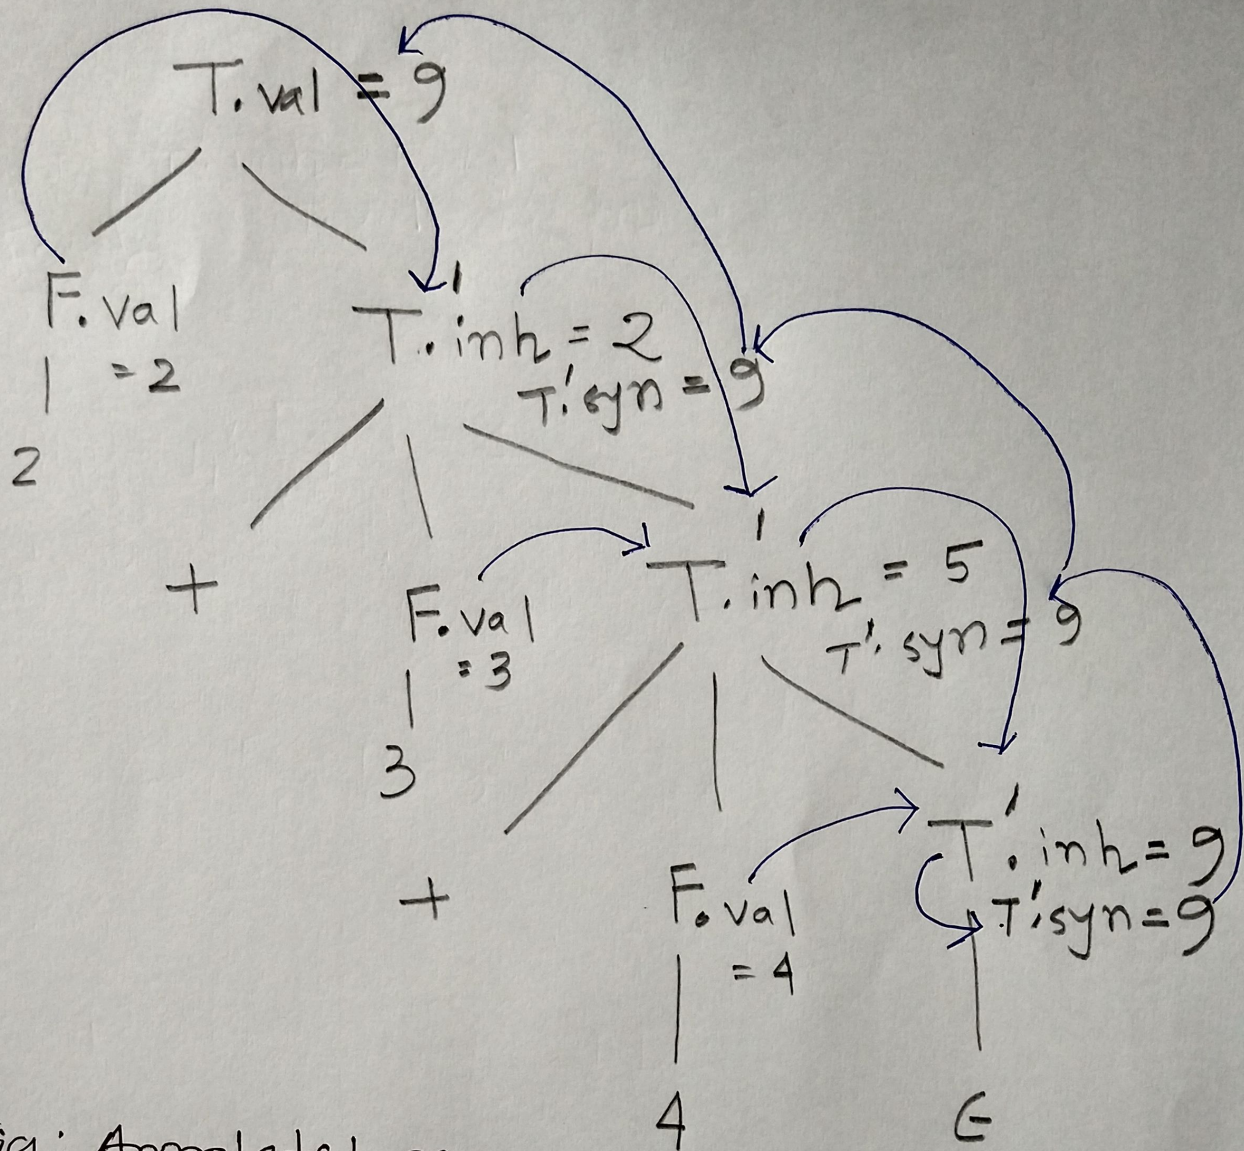 T.val = 9
F.val
= 2
2
T'.inh = 2
T'.syn = 9
+
F.val
= 3
3
T'.inh = 5
T'.syn = 9
+
F.val
= 4
4
T'.inh = 9
T'.syn = 9
ϵ